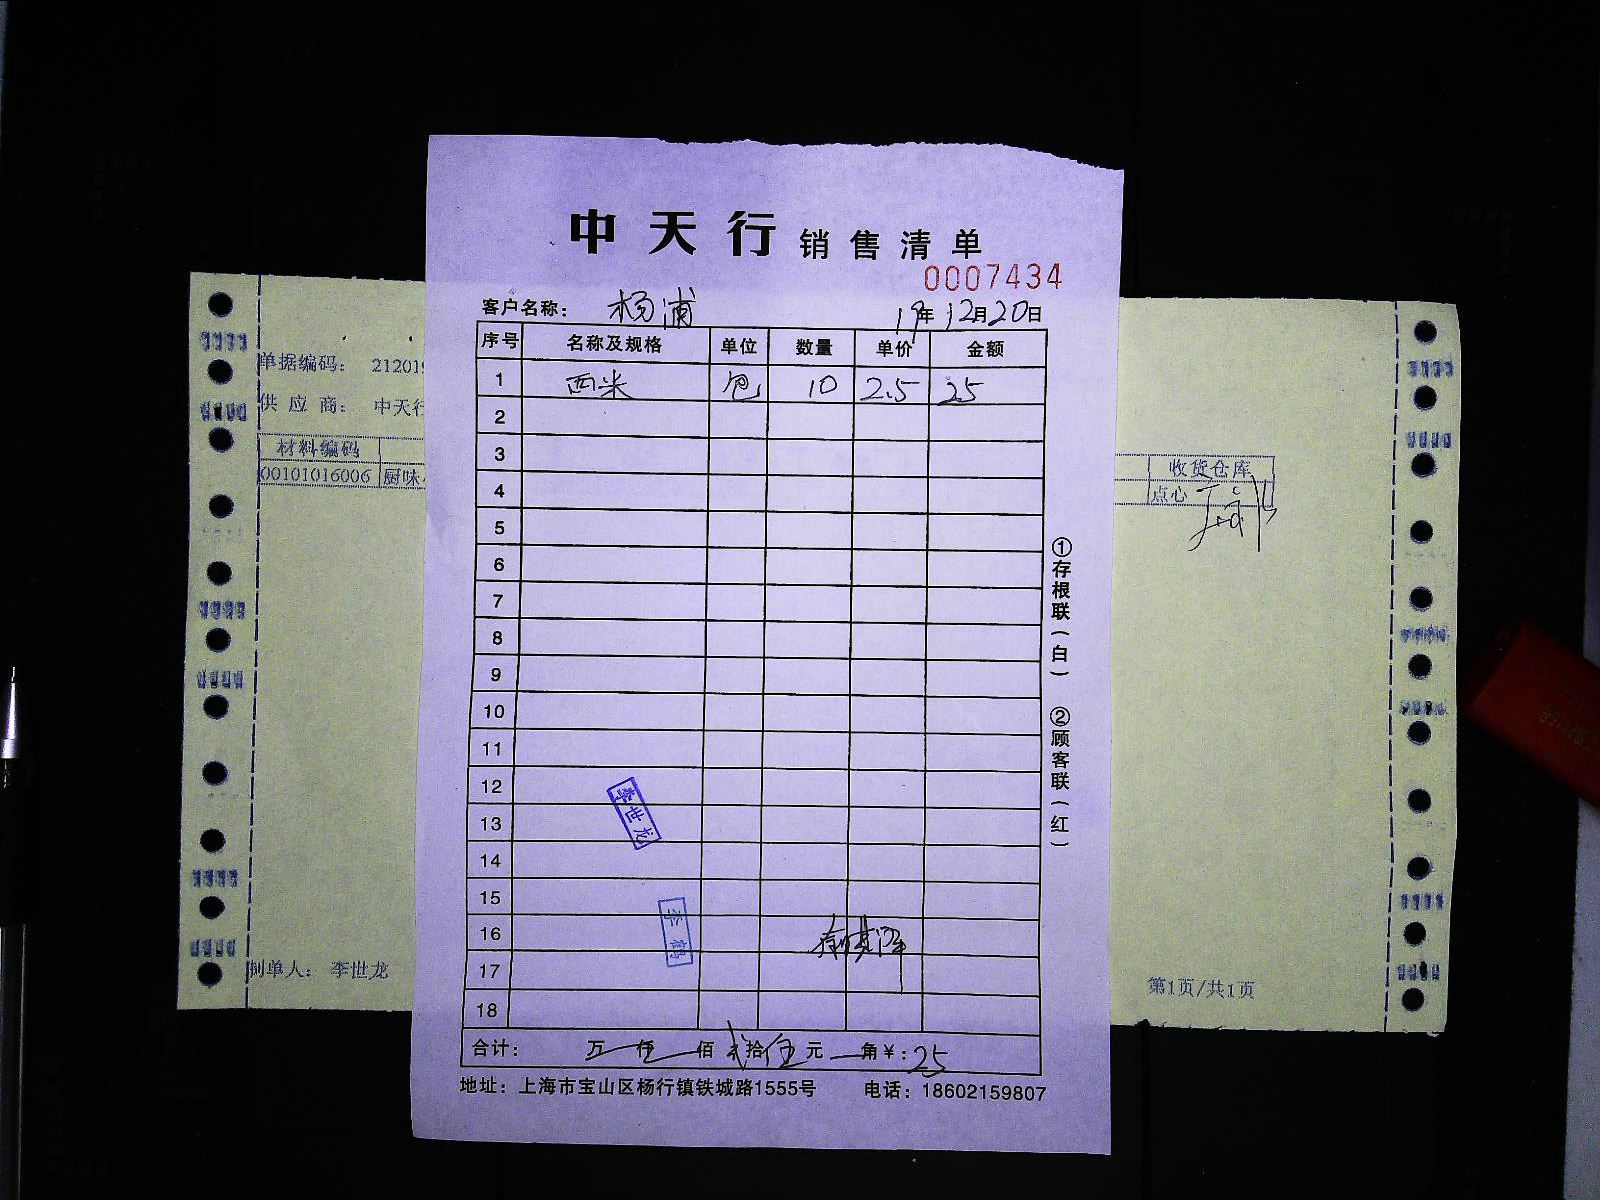 中天行 销售清单
0007434
客户名称： 杨浦 19年12月20日
序号 名称及规格 单位 数量 单价 金额
1 西米 包 10 2.5 25
2
3
4
5
6
7
8
9
10
11
12
13
14
15
16
17
18
李世龙
李鹤
合计： 万 仟 佰 贰拾伍元 角￥：25
地址：上海市宝山区杨行镇铁城路1555号 电话：18602159807
①存根联（白） ②顾客联（红）
单据编码： 21201
供应商： 中天行
材料编码
00101016006 厨味
制单人： 李世龙
收货仓库
点心
第1页/共1页